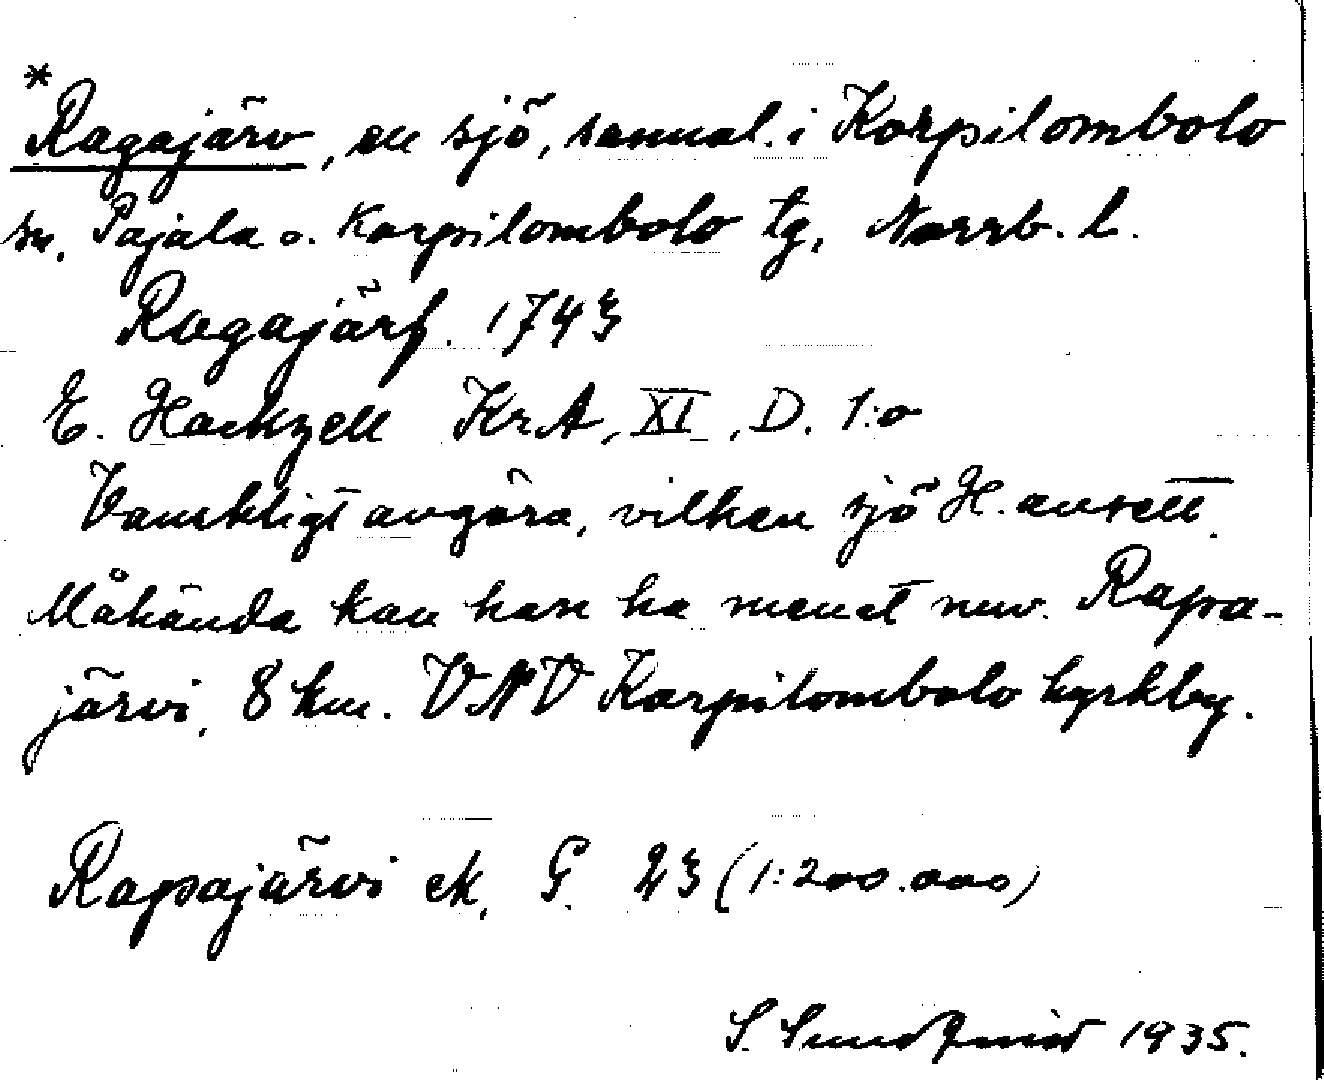 * Ragajärv, en sjö, sannol. i Korpilombolo
sn, Pajala o. Korpilombolo tg, Norrb. l.
Ragajärf. 1743
E. Hackzell KrA, XI, D. 1:o
Vanskligt avgöra, vilken sjö H. ansett.
Måhända kan han ha menat nuv. Rapa-
järvi, 8 km. VNV Korpilombolo kyrkby.
Rapajärvi ek. G. 23 (1:200.000)
S. Sundqvist 1935.